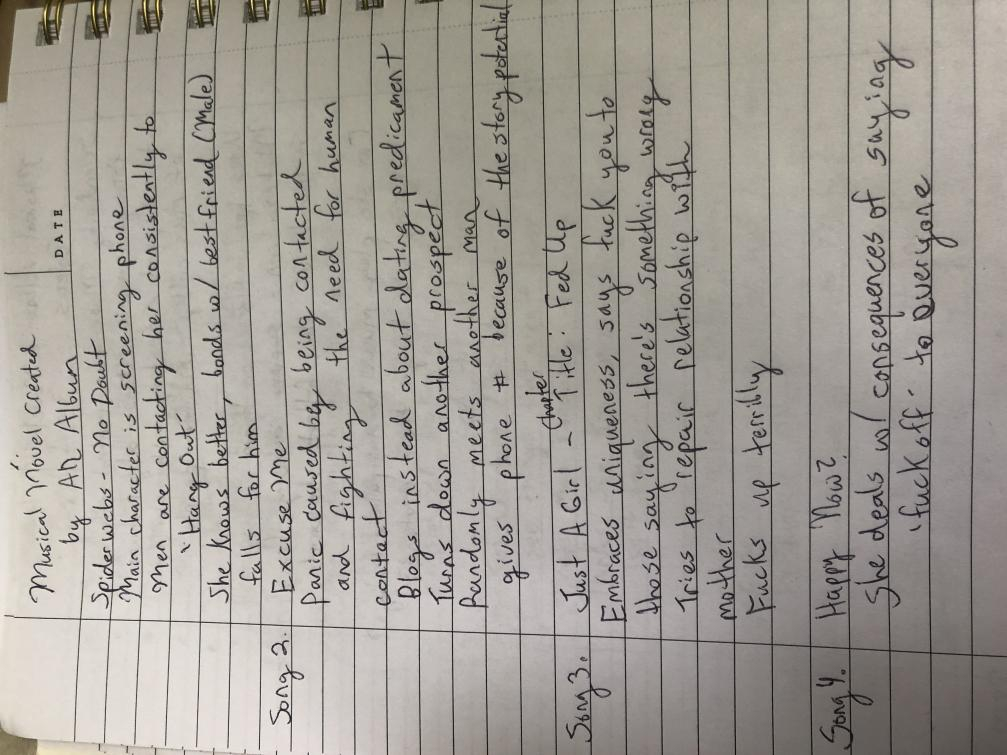 Musical Novel Created
by An Album
DATE
Spiderwebs - No Doubt
Main character is screening phone
Men are contacting her consistently to
"Hang Out"
She knows better, bonds w/ best friend (Male)
falls for him
Song 2. Excuse Me
Panic caused by being contacted
and fighting the need for human
contact
Blogs instead about dating predicament
Turns down another prospect
Randomly meets another man
gives phone # because of the story potential
Song 3. Just A Girl - Chapter Title: Fed Up
Embraces uniqueness, says fuck you to
those saying there's something wrong
Tries to repair relationship with
mother
Fucks up terribly
Song 4. Happy Now?
She deals w/ consequences of saying
"fuck off" to everyone